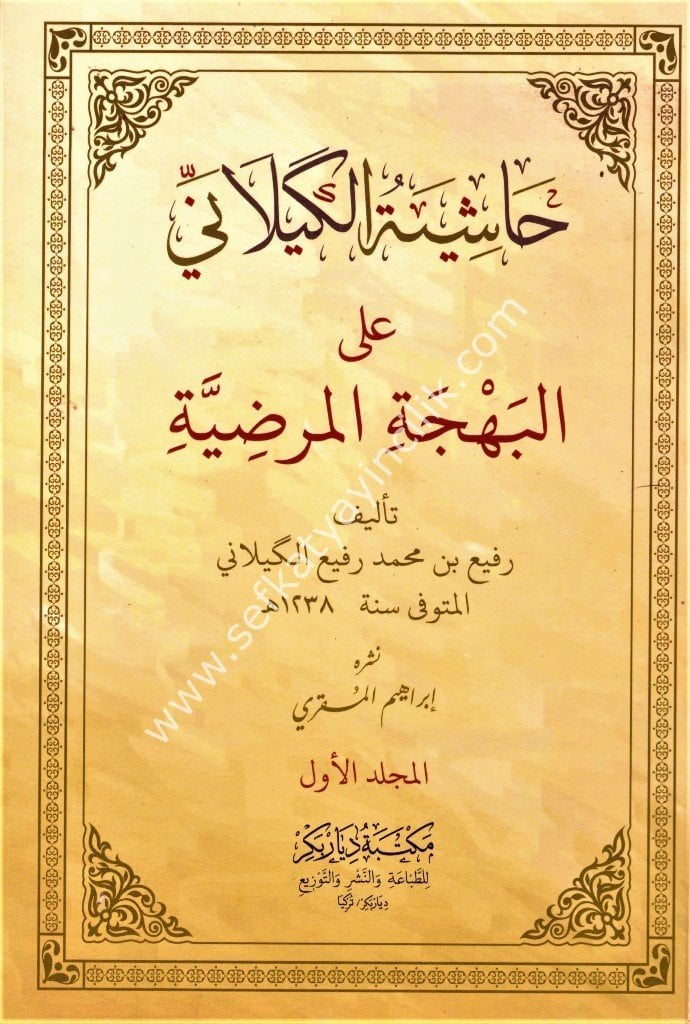 حَاشِيَةُ الگَيلَانيّ
على
البَهْجَةِ المرضِيَّةِ
تأليف
رفيع بن محمد رفيع الگيلاني
المتوفى سنة ١٢٣٨هـ
نشره
إبراهيم المُقري
المجلد الأول
مَكْتَبَةُ دِيَارْبَكِرْ
لِلطِّبَاعَةِ وَالنَّشْرِ وَالتَّوْزِيعِ
دِيَارْبَكِرْ/ تُرْكِيَا
www.sefkatyayincilik.com